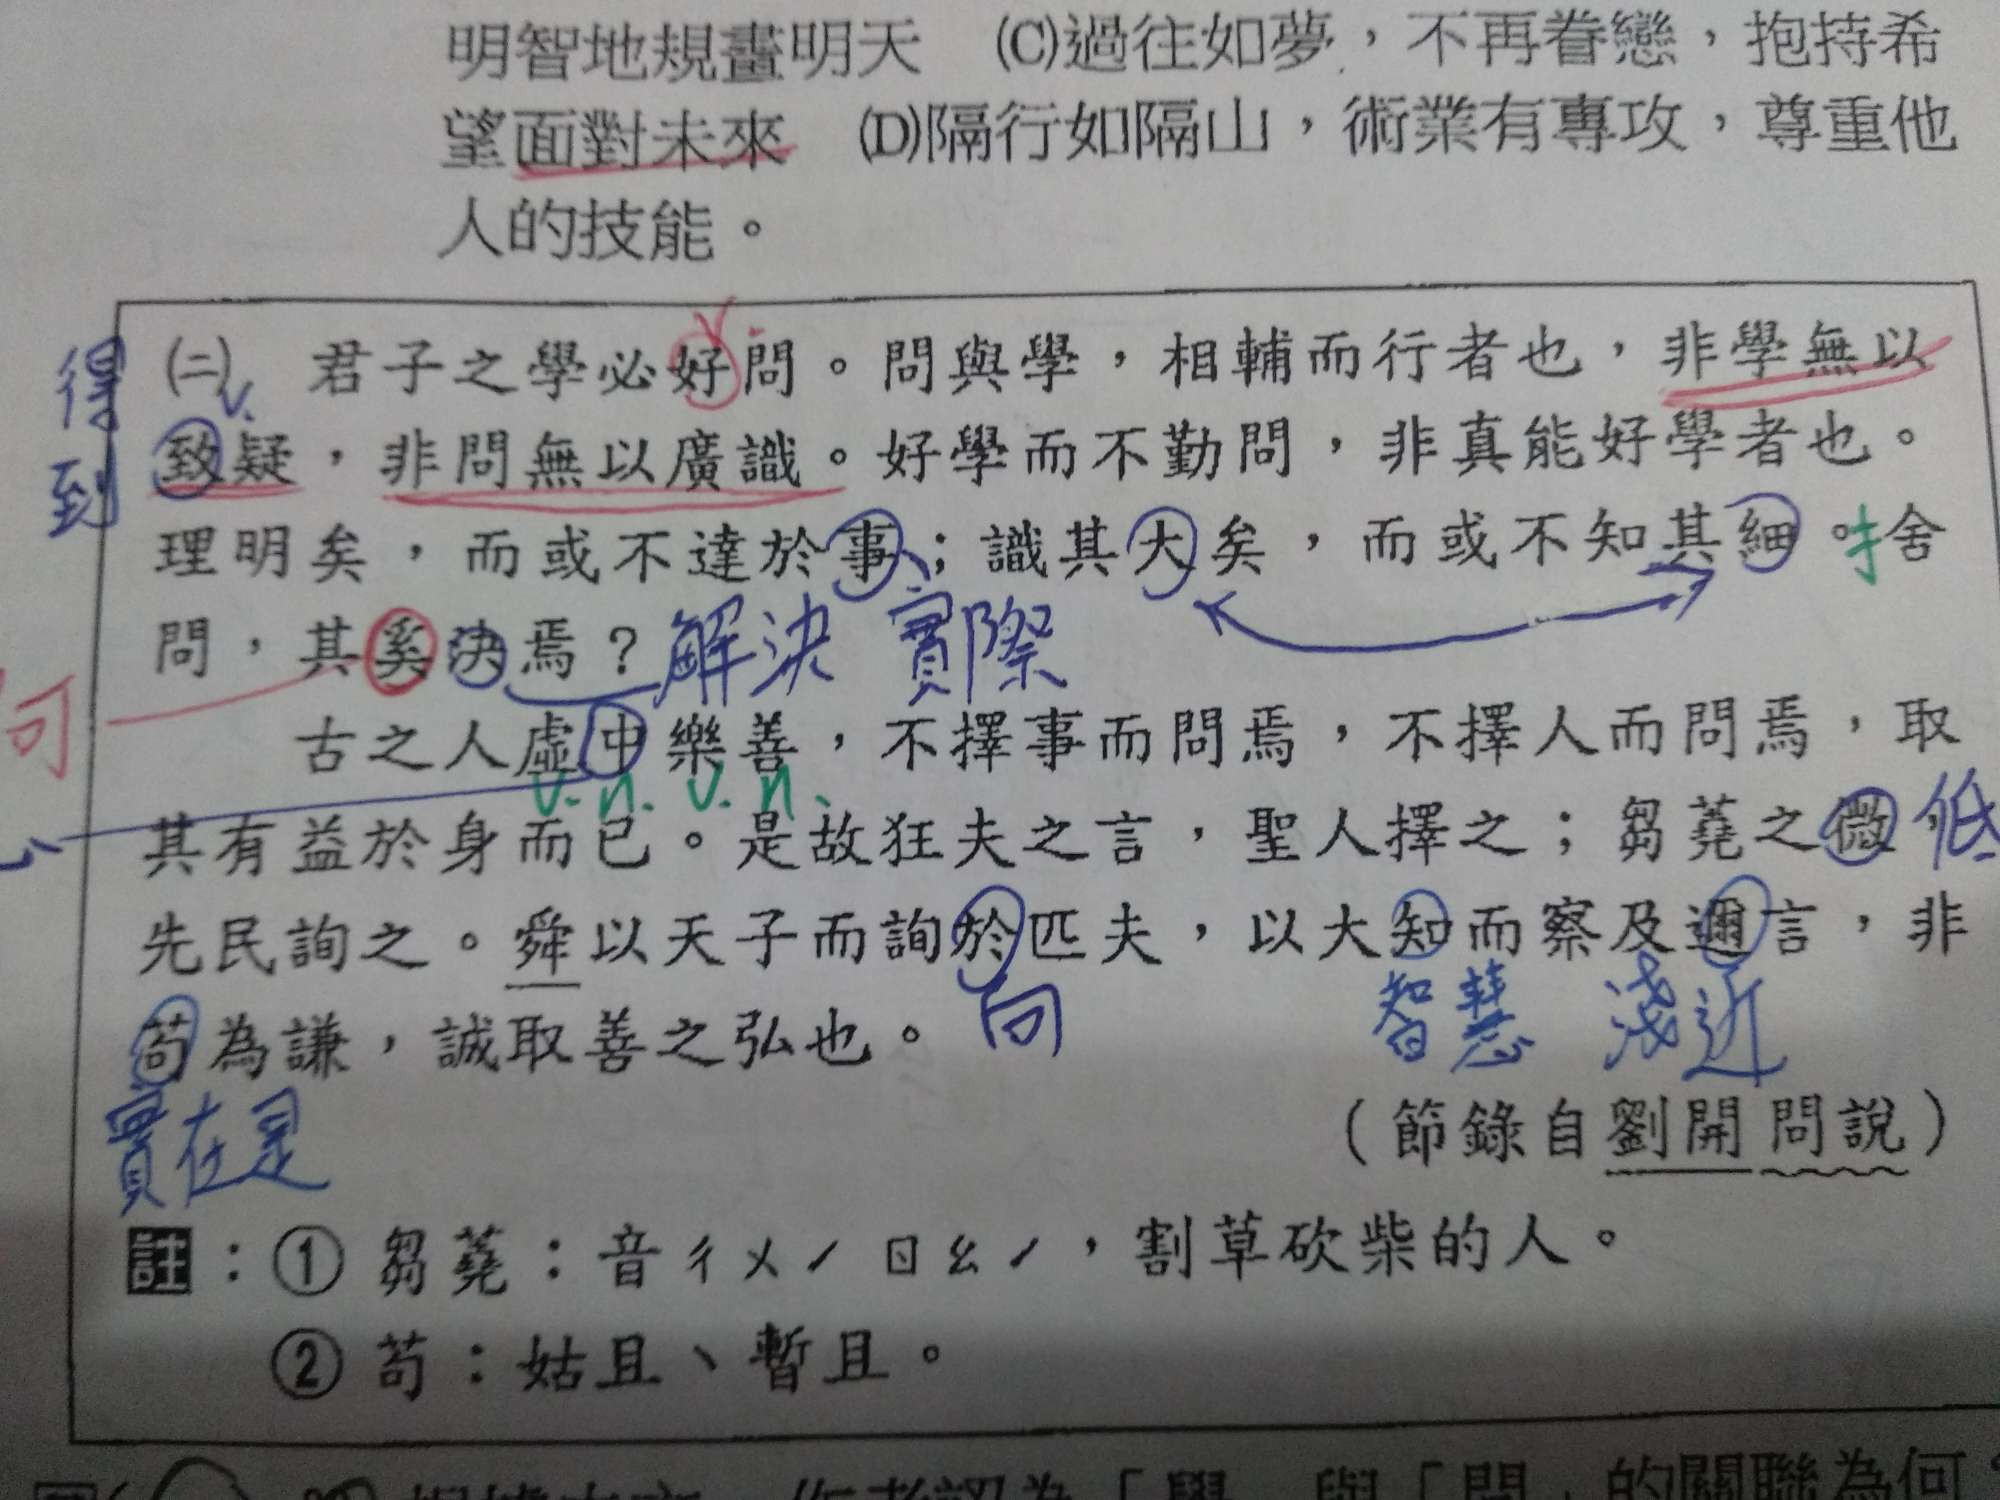 明智地規畫明天　(C)過往如夢，不再眷戀，抱持希
望面對未來　(D)隔行如隔山，術業有專攻，尊重他
人的技能。
得到
v.
㈡　君子之學必好問。問與學，相輔而行者也，非學無以
致疑，非問無以廣識。好學而不勤問，非真能好學者也。
理明矣，而或不達於事；識其大矣，而或不知其細。扌舍
問，其奚決焉？解決 實際
何
古之人虛中樂善，不擇事而問焉，不擇人而問焉，取
v. n. v. n.
其有益於身而已。是故狂夫之言，聖人擇之；芻蕘之微，低
先民詢之。舜以天子而詢於匹夫，以大知而察及邇言，非
苟為謙，誠取善之弘也。向 智慧 淺近
實在是
（節錄自劉開問說）
註：① 芻蕘：音ㄔㄨˊ ㄖㄠˊ，割草砍柴的人。
② 苟：姑且、暫且。
作者認為「學」與「問」的關聯為何？